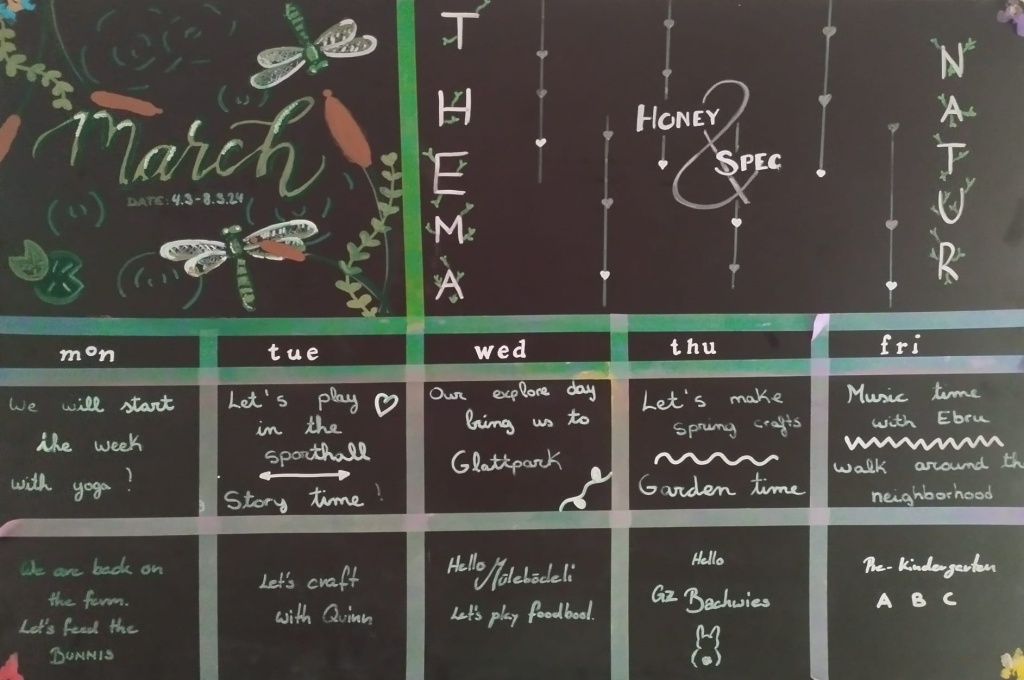 March
DATE: 4.3-8.3.24
THEMA
HONEY
&
SPEC
NATUR
mon
tue
wed
thu
fri
We will start
the week
with yoga!
Let's play
in the
sporthall
Story time!
Our explore day
bring us to
Glattpark
Let's make
spring crafts
Garden time
Music time
with Ebru
walk around th
neighborhood
We are back on
the farm.
Let's feed the
BUNNIS
Let's craft
with Quinn
Hello Mülebödeli
Let's play foodbool.
Hello
GZ Bachwies
Pre-Kindergarten
A B C